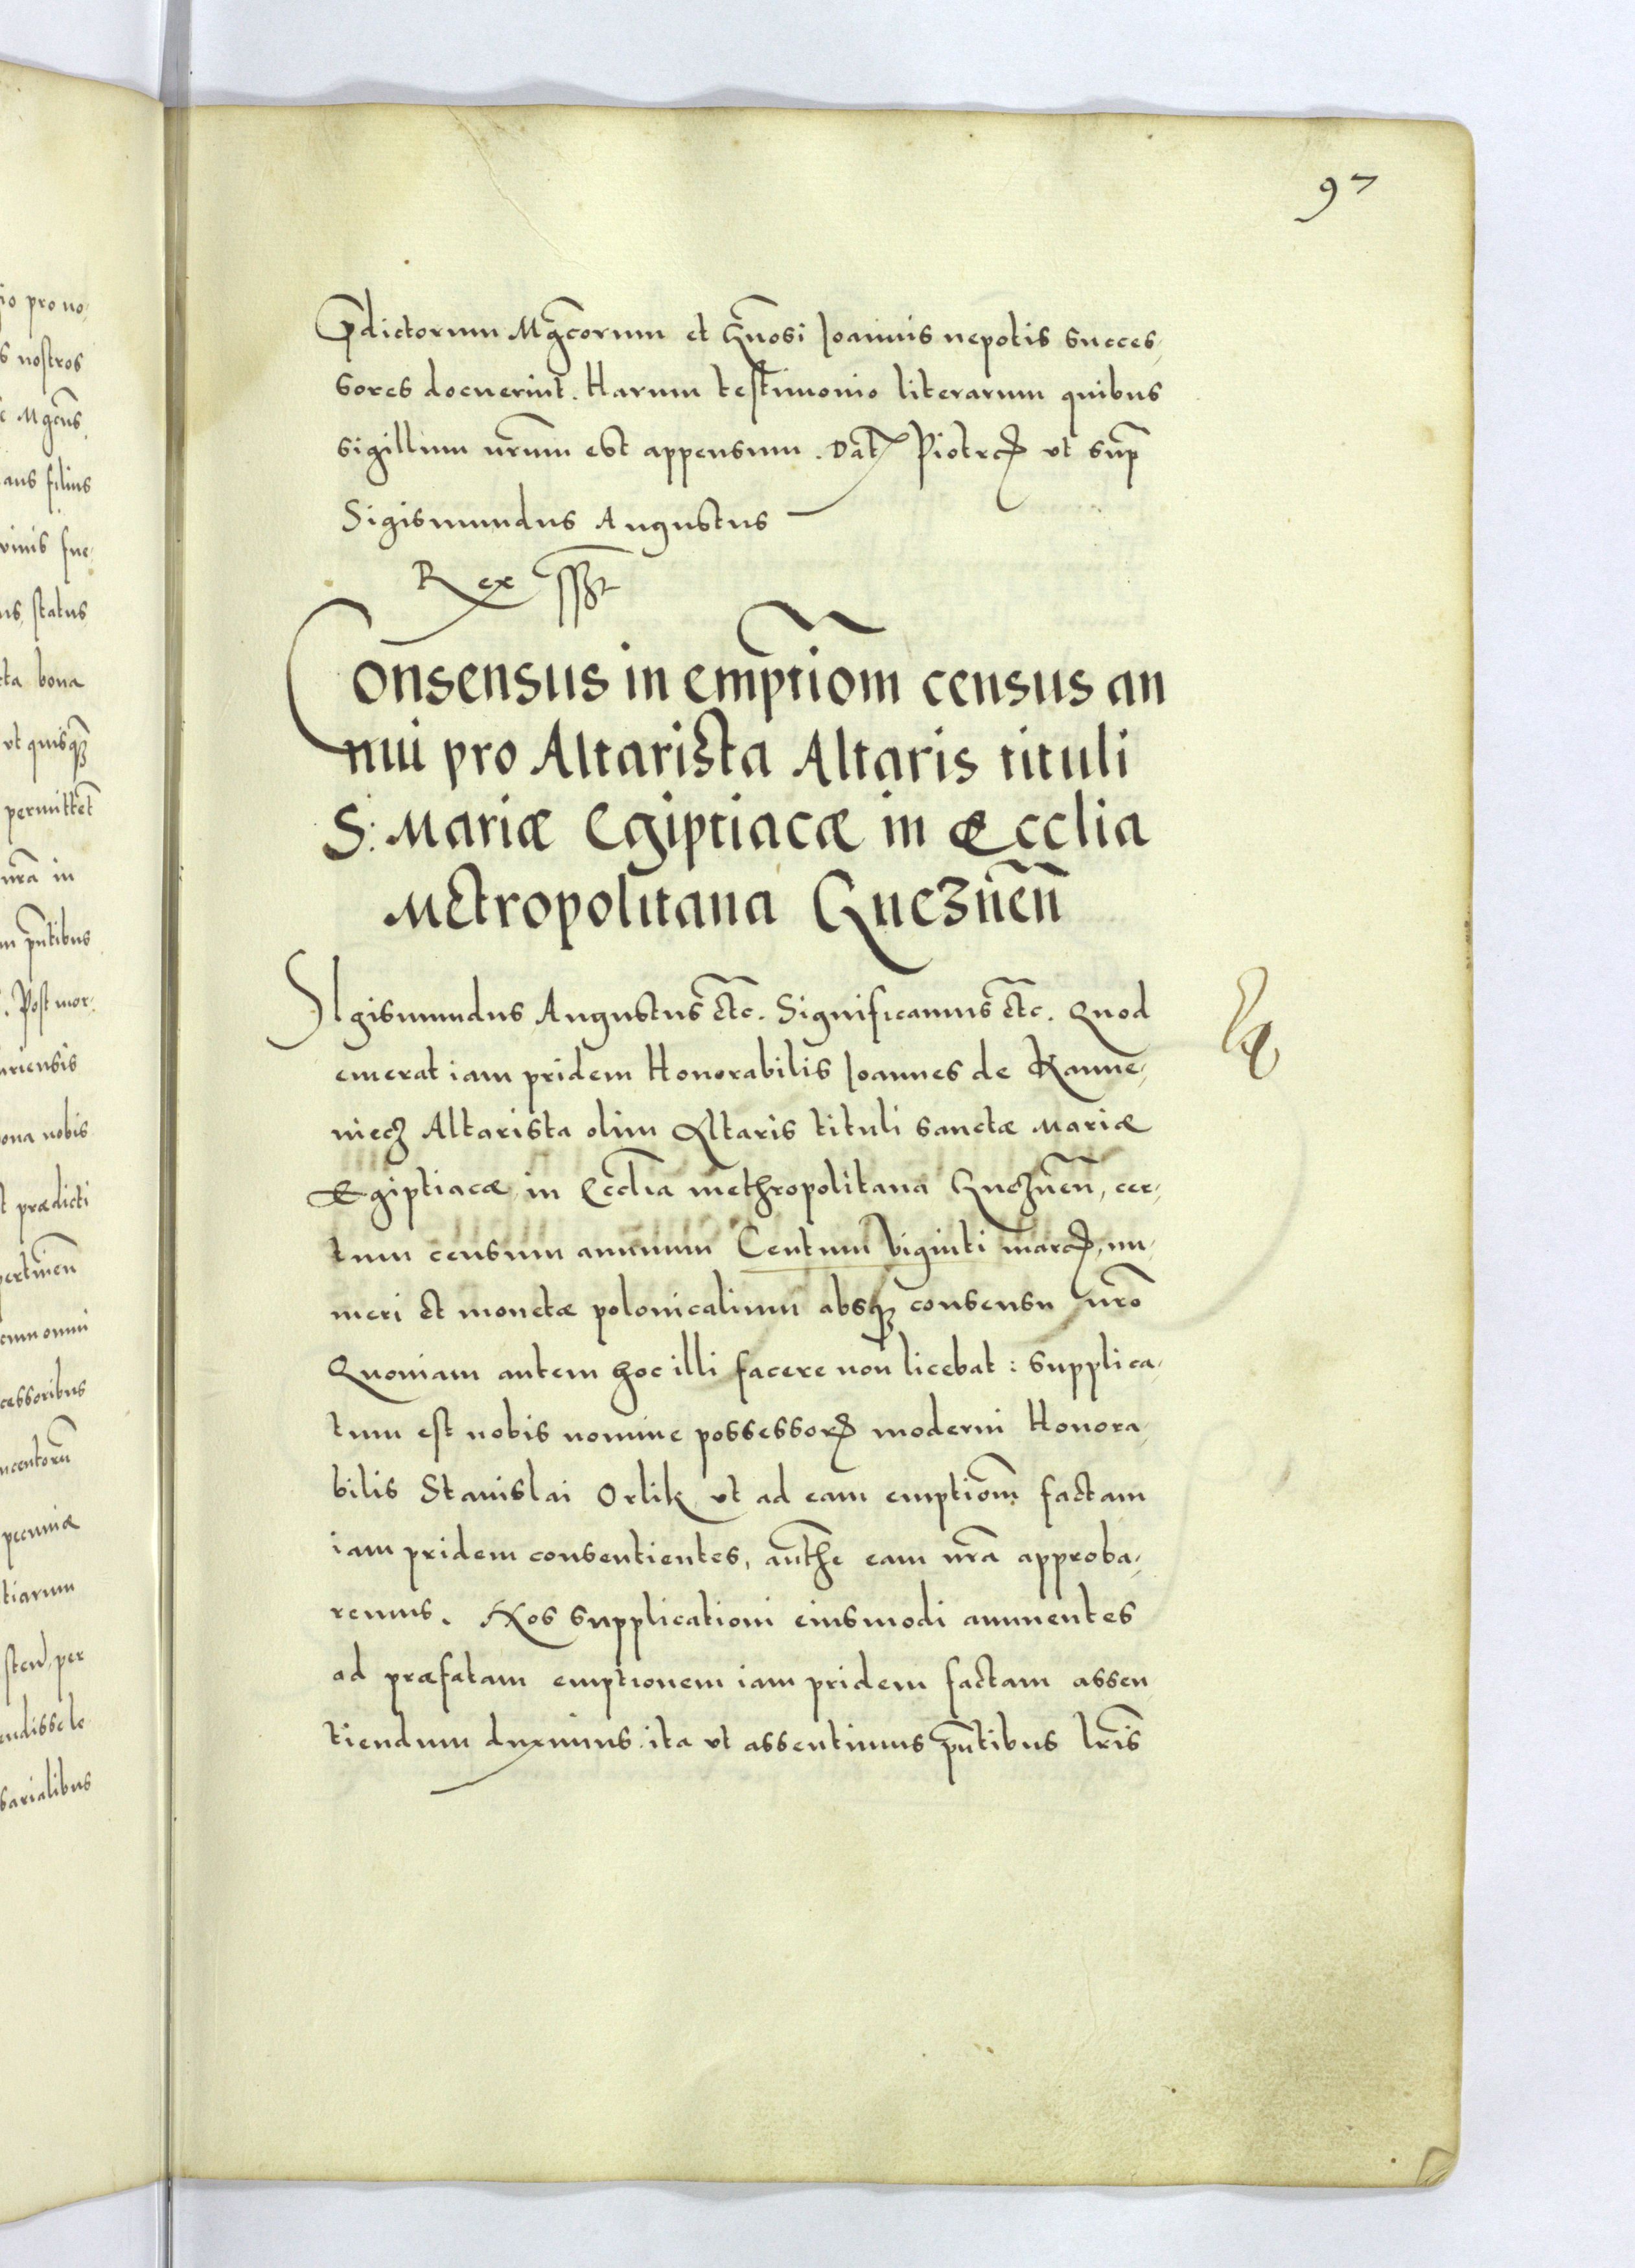 97
Prædictorum Mgcorum et Gnosi Ioannis nepotis succes,
sores docuerint. Harum testimonio literarum quibus
sigillum nrum est appensum. Dat Piotrcoviæ ut sup
Sigismundus Augustus
Rex sst
Consensus in emptiom census an
nui pro Altarista Altaris tituli
S: Mariæ Egiptiacæ in Ecclia
Metropolitana Gneznen
SIgismundus Augustus etc. Significamus etc. Quod
emerat iam pridem Honorabilis Ioannes de Kamie,
niecz Altarista olim Altaris tituli sanctæ Mariæ
Egiptiacæ in Ecclia methropolitana Gneznen, cer,
tum censum annuum Centum viginti marcarum, nu,
meri et monetæ polonicalium absq consensu nro
Quoniam autem hoc illi facere non licebat: supplica,
tum est nobis nomine possessoris moderni Honora,
bilis Stanislai Orlik ut ad eam emptiom factam
iam pridem consentientes, authe eam nra approba,
remus. Nos supplicationi eiusmodi annuentes
ad præfatam emptionem iam pridem factam assen
tiendum duximus. ita ut assentimus pntibus lris
io pro no,
s nostros
Mgcus
ans filius
us, status
cta bona
ut quisq
permittet
nra in
m pntibus
Post mor,
ona nobis
t prædicti
pertinen
cum omni
cessoribus
pecuniæ
tiarum
endisse le
sarialibus